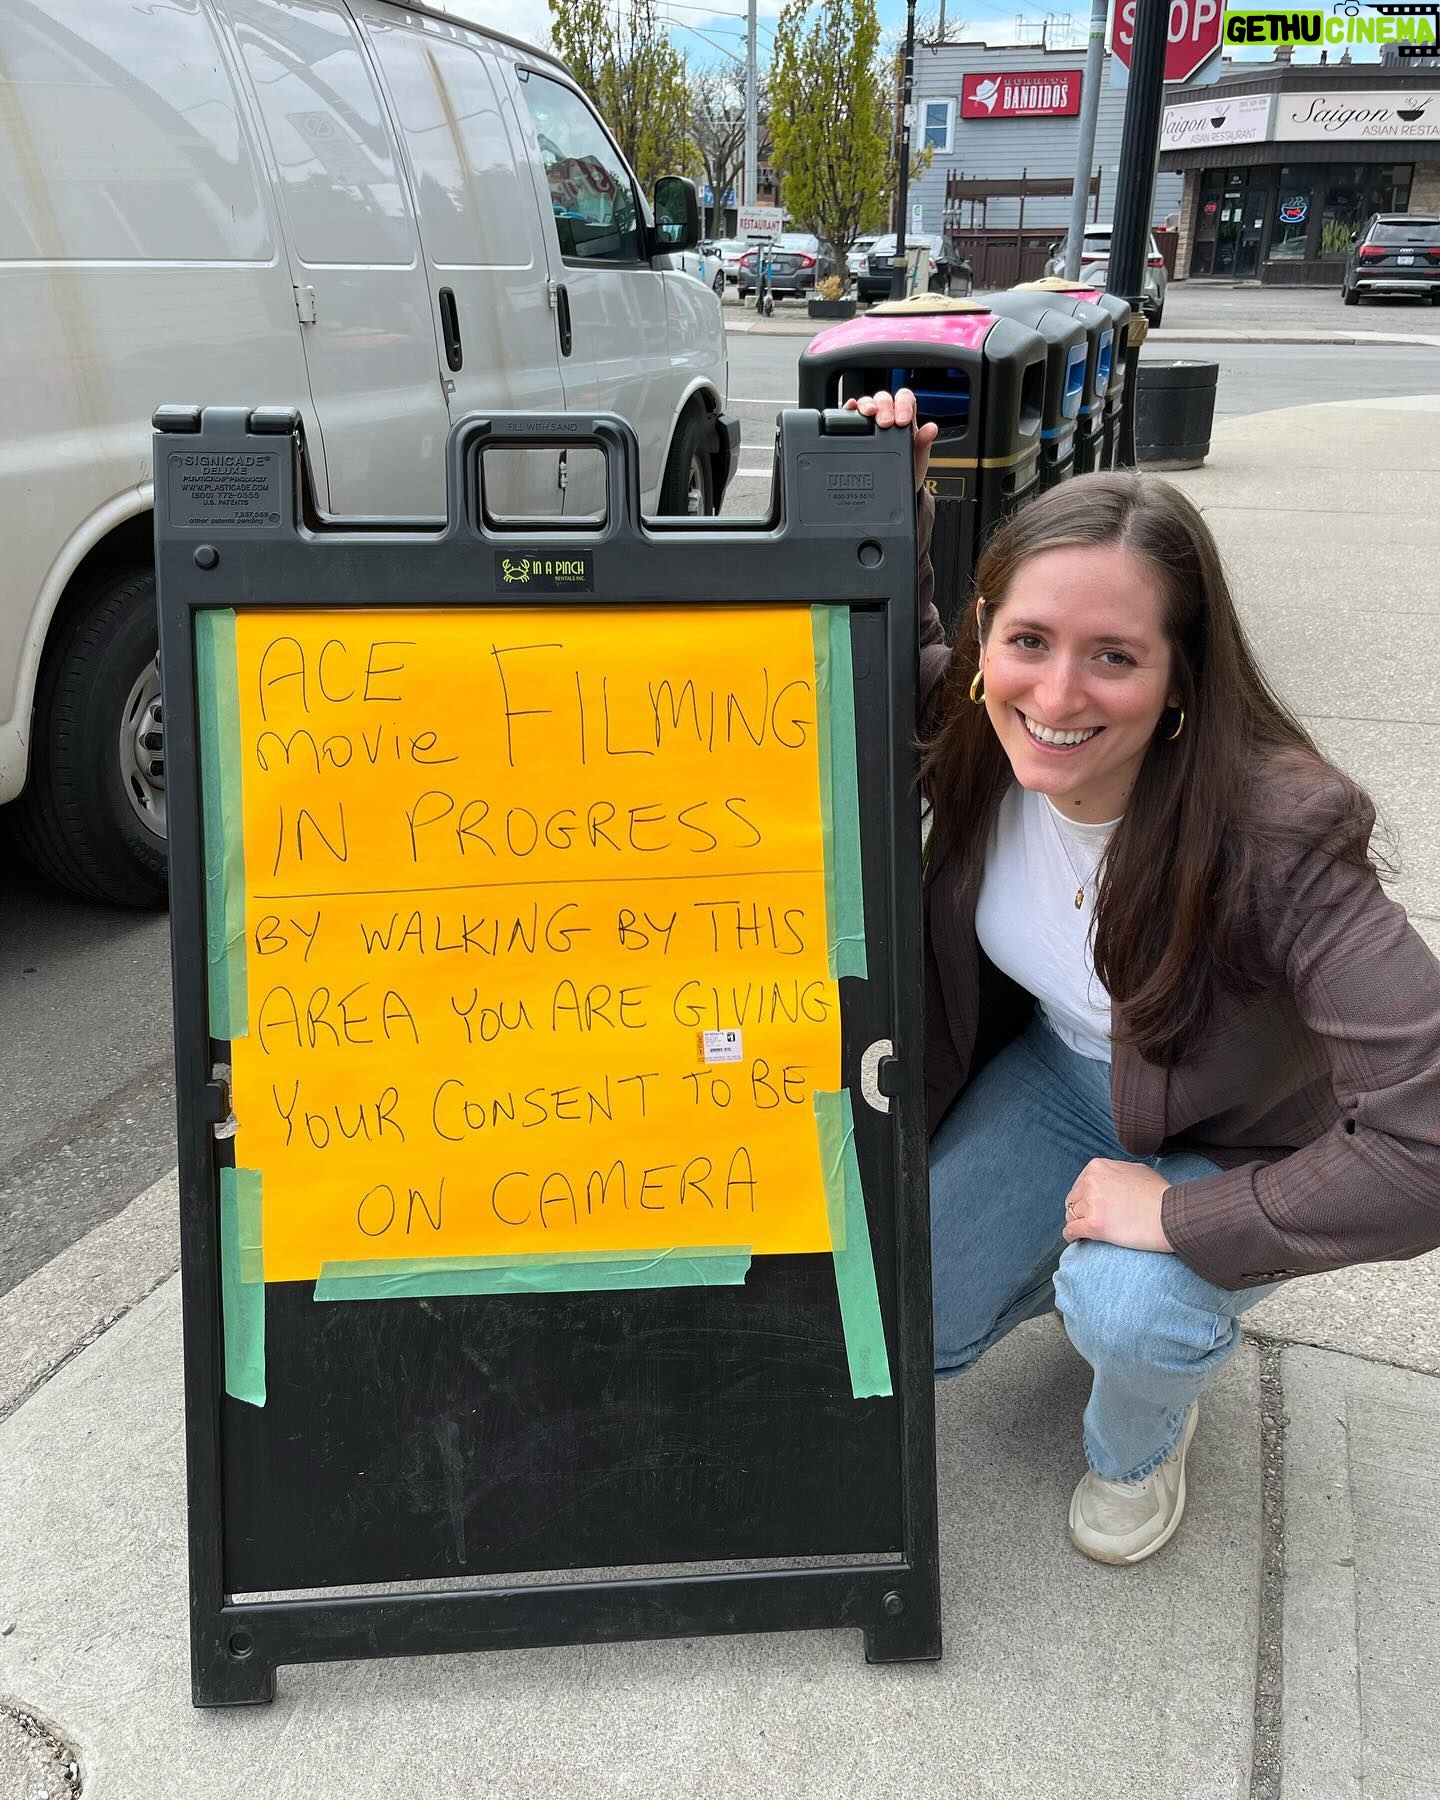 STOP
GETHUCINEMA
BURRITO
BANDIDOS
Saigon
ASIAN RESTAURANT
Saigon
ASIAN RESTA
RESTAURANT
FILL WITH SAND
SIGNICADE®
DELUXE
PLASTICADE PRODUCT
WWW.PLASTICADE.COM
(800) 772-0355
U.S. PATENTS
7,357,569
other patents pending
ULINE
1-800-295-5510
uline.com
IN A PINCH
RENTALS INC.
ACE
movie FILMING
IN PROGRESS
BY WALKING BY THIS
AREA YOU ARE GIVING
YOUR CONSENT TO BE
ON CAMERA